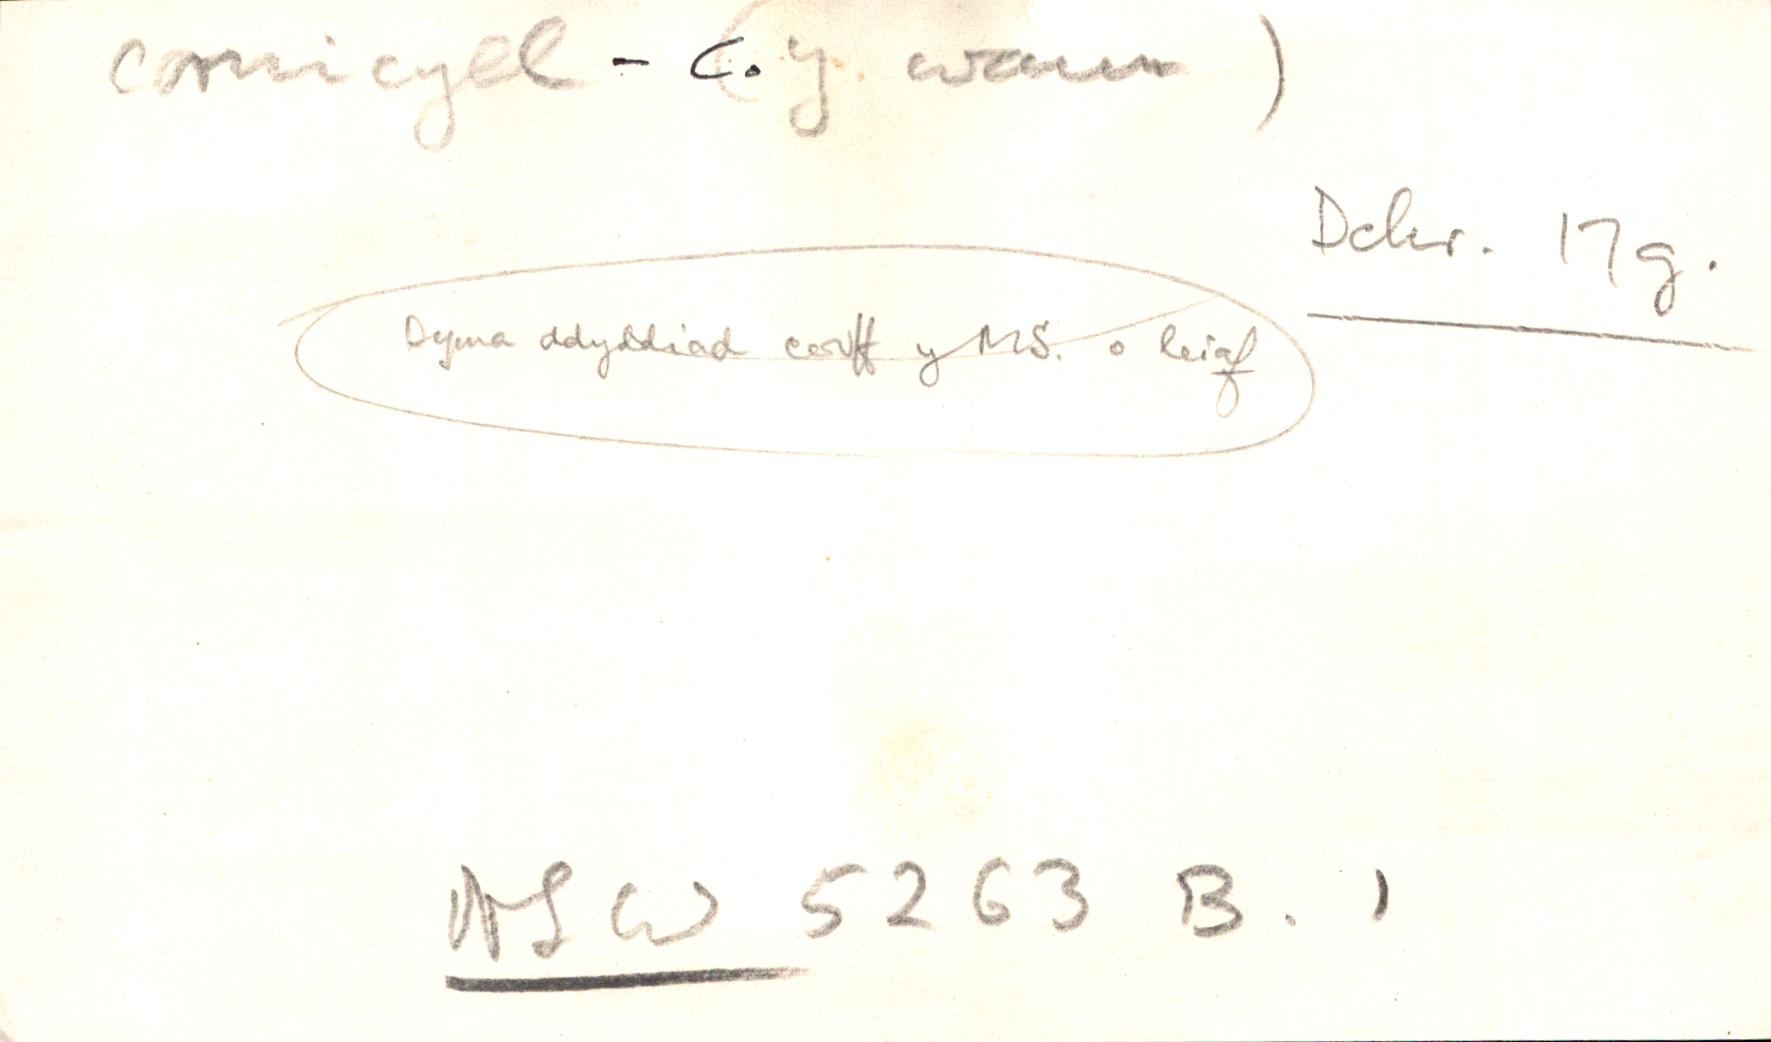 cornicyll - c. y waun)
Dchr. 17g.
Dyma ddyddiad corff y MS. o leiaf
NLW 5263 B. 1